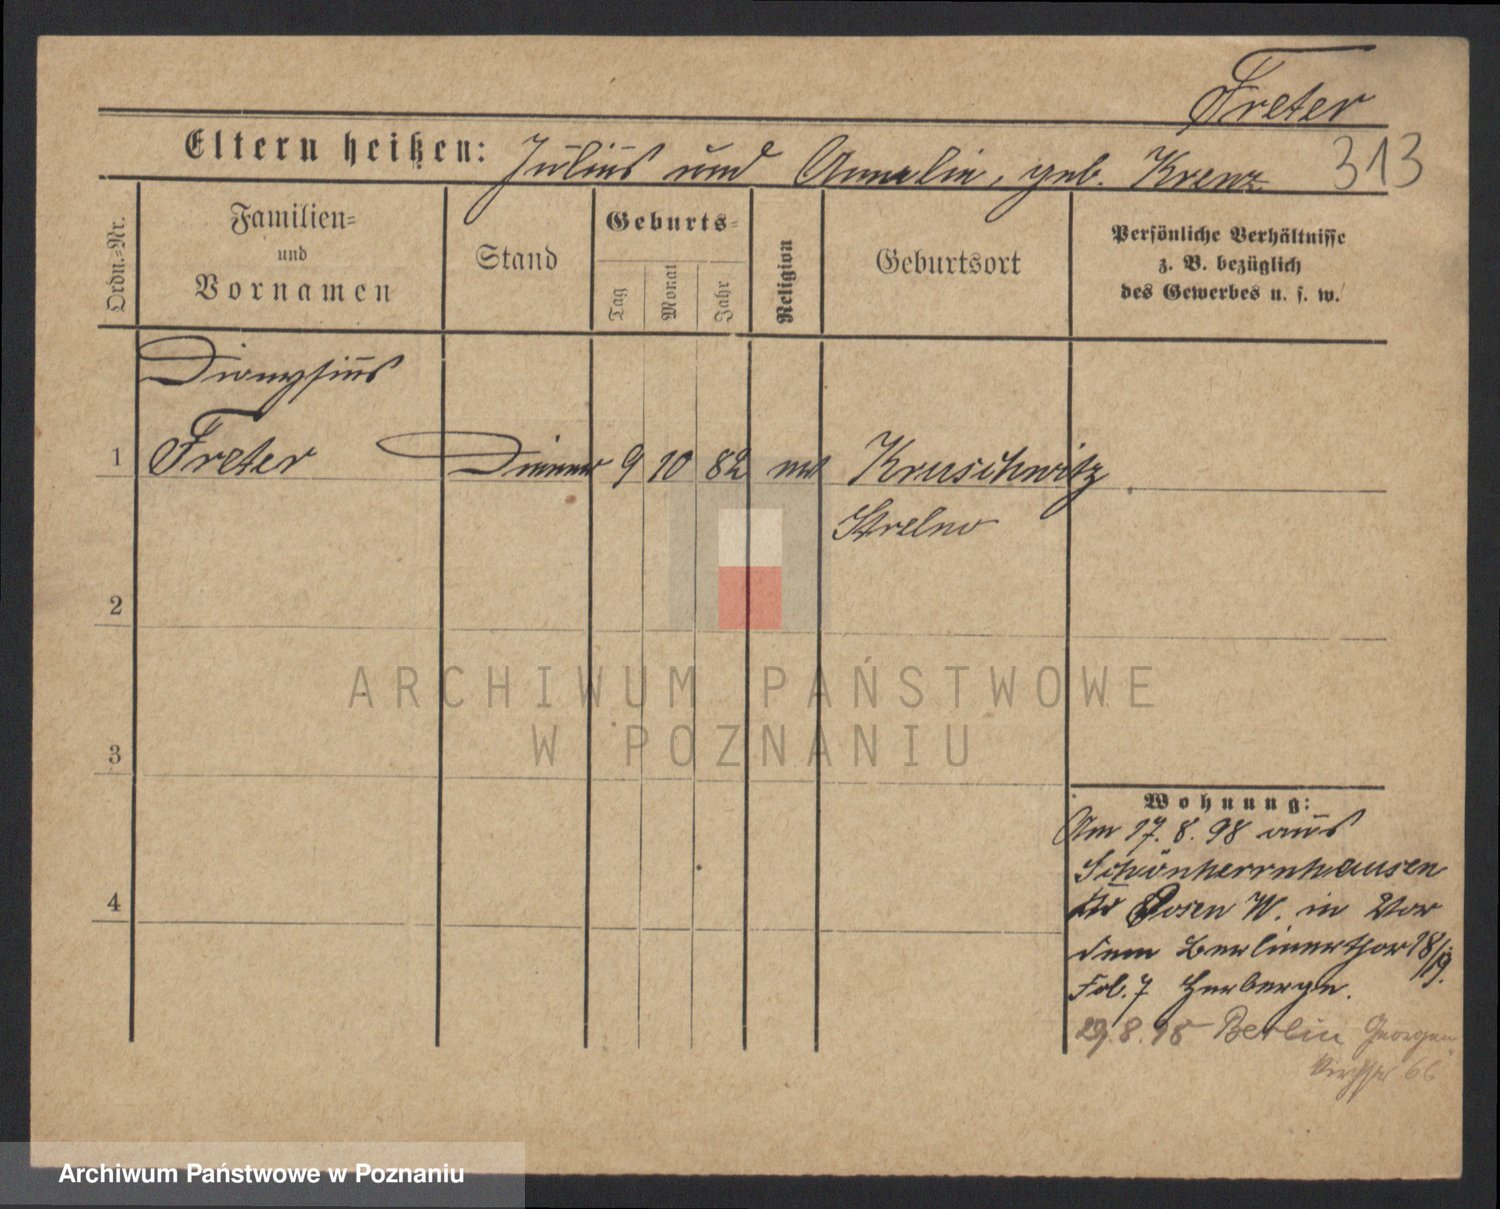 Freter
313
Eltern heißen: Julius und Amalie, geb. Krenz
Ordn.=Nr.
Familien=
und
Vornamen
Stand
Geburts=
Tag
Monat
Jahr
Religion
Geburtsort
Persönliche Verhältnisse
z. B. bezüglich
des Gewerbes u. s. w.
Dionysius
1 Freter Diener 9 10 82 Kruschwitz
Strelno
2
3
4
Wohnung:
Am 17. 8. 98 aus
Schönherrnhausen
Posen W. in Vor
dem Berlinerthor 18/19.
Fol. 7 Herberge.
29. 8. 98 Berlin Georgen
kirchstr 66
ARCHIWUM PAŃSTWOWE
W POZNANIU
Archiwum Państwowe w Poznaniu